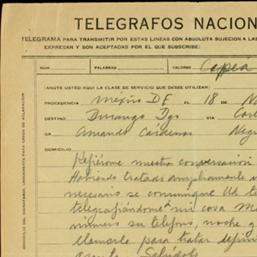 TELEGRAFOS NACION
TELEGRAMA PARA TRANSMITIR POR ESTAS LINEAS CON ABSOLUTA SUJECION A LAS
EXPRESAN Y SON ACEPTADAS POR EL QUE SUBSCRIBE:
NUM. PALABRAS VALORES Copia
ANOTE USTED AQUI LA CLASE DE SERVICIO QUE DESEE UTILIZAR:
PROCEDENCIA Mexico D F. EL 18 DE
DESTINO Durango Dgo
Sr Amando Cardenas
DOMICILIO
Refiérome nuestra conversación
Habiendo tratado ampliamente
necesario se comunique Ud
telegrafiándome mi casa
número su teléfono, noche
llamarlo para tratar
Saludos